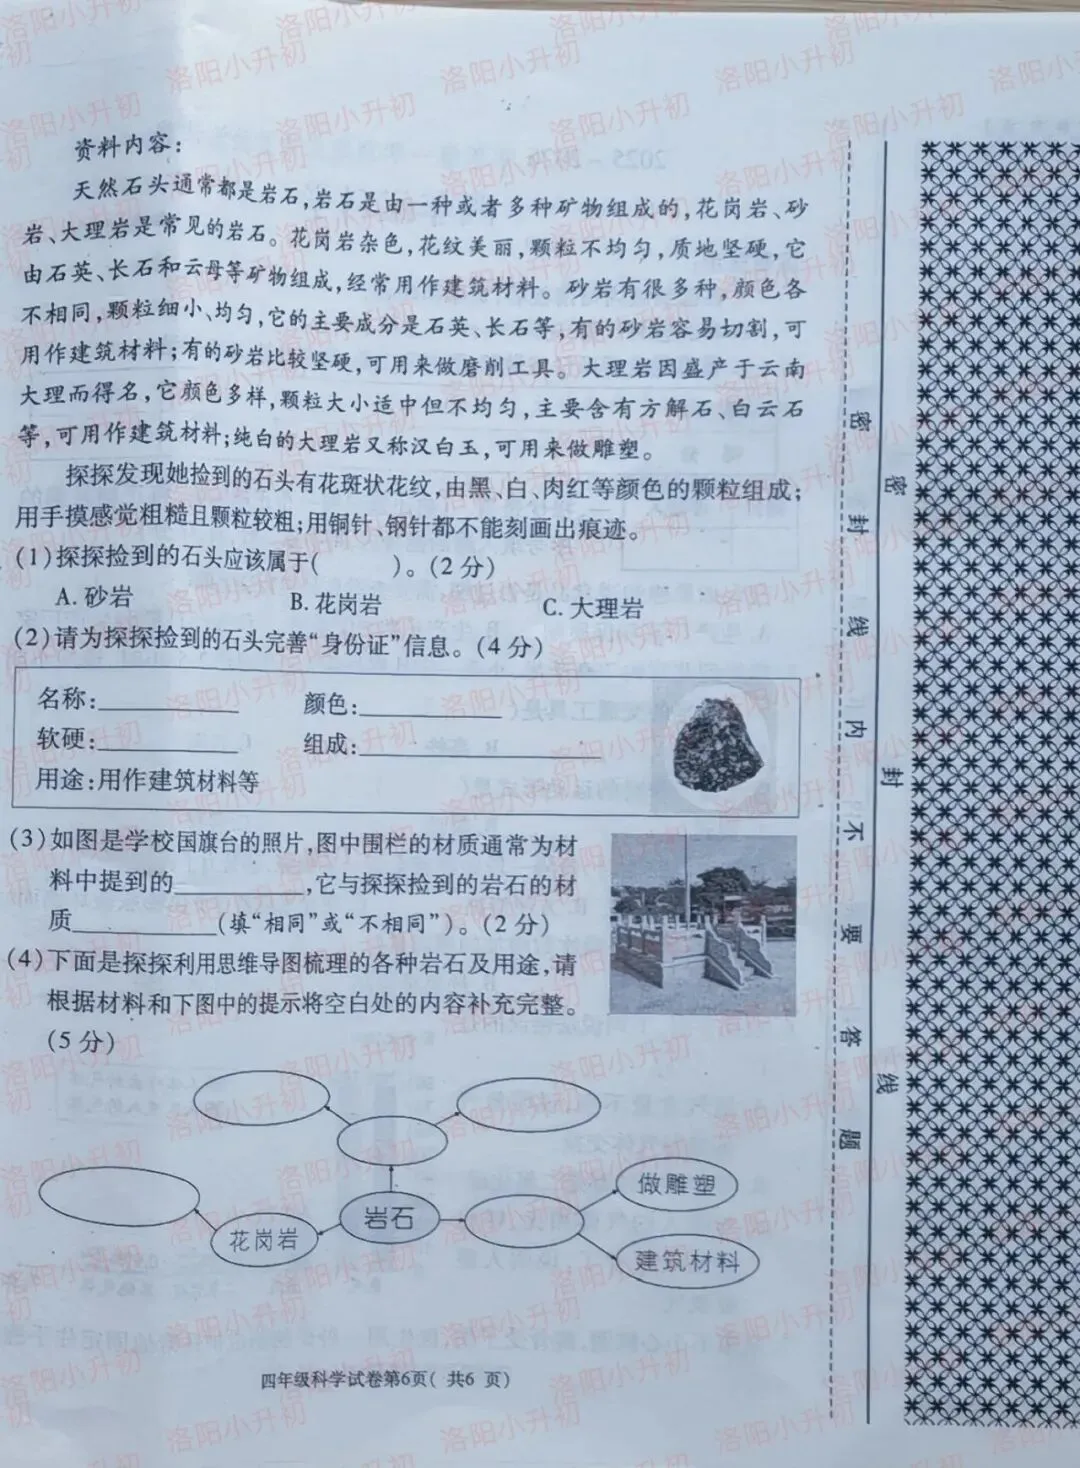 资料内容：
天然石头通常都是岩石，岩石是由一种或者多种矿物组成的，花岗岩、砂
岩、大理岩是常见的岩石。花岗岩杂色，花纹美丽，颗粒不均匀，质地坚硬，它
由石英、长石和云母等矿物组成，经常用作建筑材料。砂岩有很多种，颜色各
不相同，颗粒细小、均匀，它的主要成分是石英、长石等，有的砂岩容易切割，可
用作建筑材料；有的砂岩比较坚硬，可用来做磨削工具。大理岩因盛产于云南
大理而得名，它颜色多样，颗粒大小适中但不均匀，主要含有方解石、白云石
等，可用作建筑材料；纯白的大理岩又称汉白玉，可用来做雕塑。
探探发现她捡到的石头有花斑状花纹，由黑、白、肉红等颜色的颗粒组成；
用手摸感觉粗糙且颗粒较粗；用铜针、钢针都不能刻画出痕迹。
(1)探探捡到的石头应该属于(　　)。(2分)
A.砂岩　B.花岗岩　C.大理岩
(2)请为探探捡到的石头完善“身份证”信息。(4分)
名称：________　颜色：________
软硬：________　组成：________
用途：用作建筑材料等
(3)如图是学校国旗台的照片，图中围栏的材质通常为材
料中提到的________，它与探探捡到的岩石的材
质________(填“相同”或“不相同”)。(2分)
(4)下面是探探利用思维导图梳理的各种岩石及用途，请
根据材料和下图中的提示将空白处的内容补充完整。
(5分)
做雕塑
岩石
花岗岩
建筑材料
四年级科学试卷第6页( 共6 页)
密 封 线 内 不 要 答 题
密 封 线
洛阳小升初